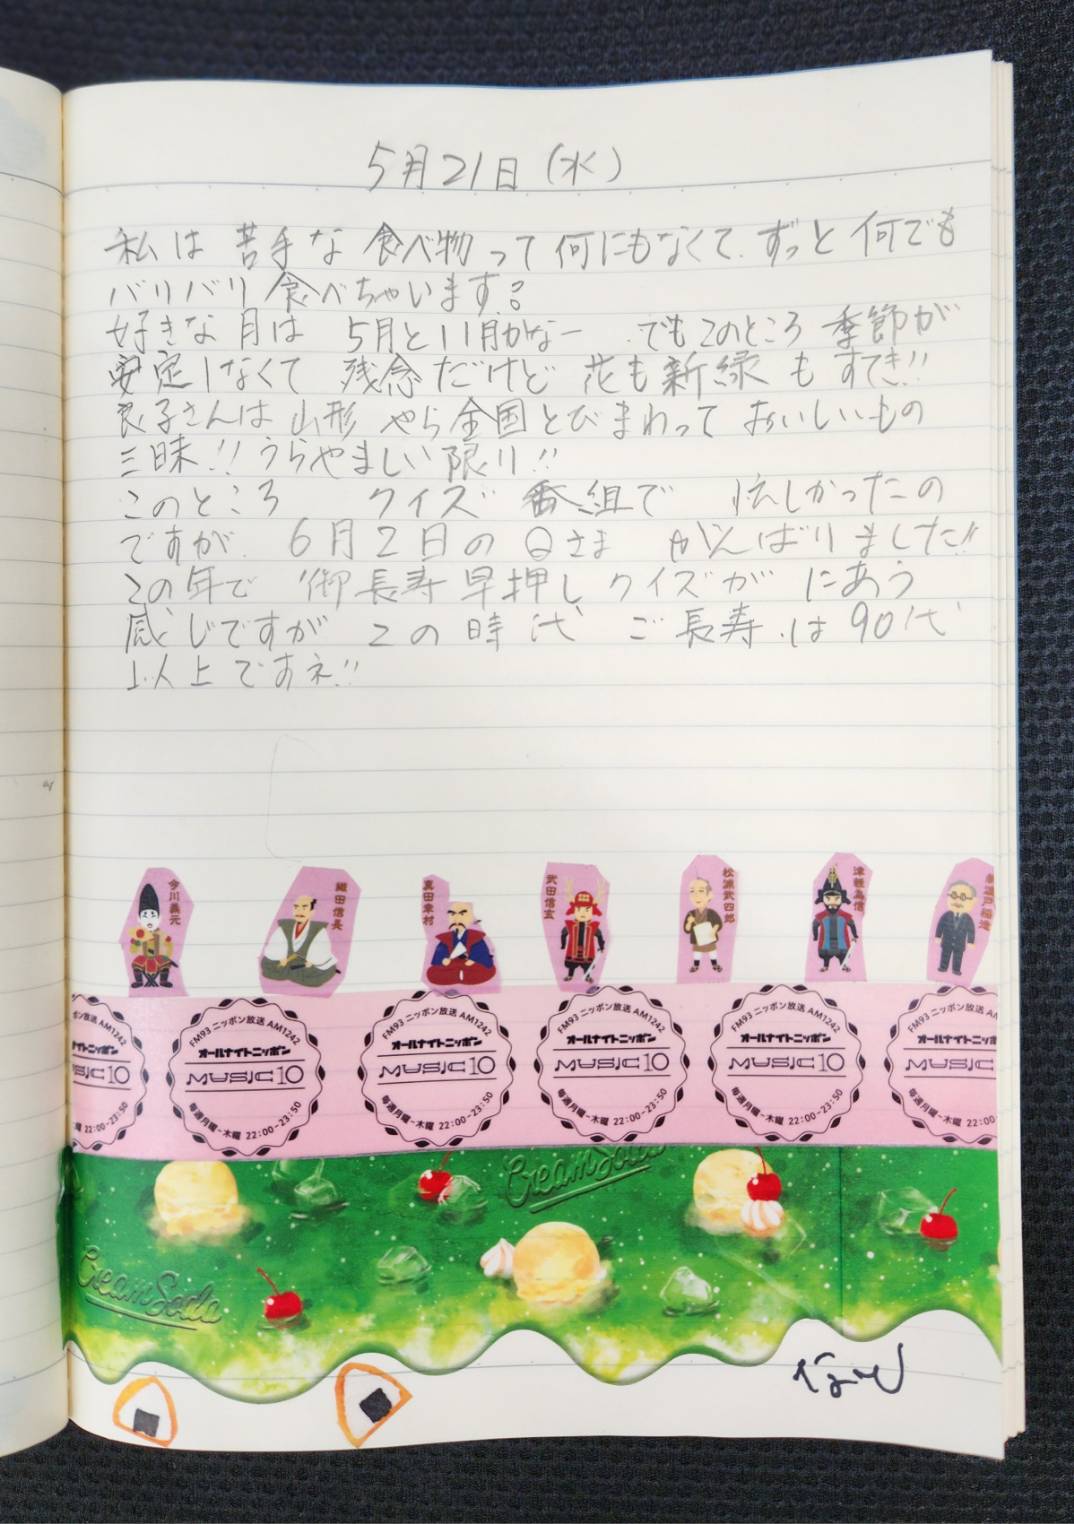 5月21日(水)
私は苦手な食べ物って何にもなくて、ずっと何でも
バリバリ食べちゃいます。
好きな月は 5月と11月かなー でもこのところ季節が
安定しなくて 残念だけど 花も新緑も すてき!!
良子さんは山形やら全国とびまわって おいしいもの
三昧!!うらやましい限り!!
このところ クイズ番組で 忙しかったの
ですが、6月2日のQさま がんばりました!!
この年で 御長寿早押しクイズが にあう
感じですが この時代 ご長寿は90代
以上ですネ!!
今川義元
織田信長
真田幸村
武田信玄
松浦武四郎
津軽為信
新渡戸稲造
ニッポン放送 AM1242
FM93 ニッポン放送 AM1242
FM93 ニッポン放送 AM1242
FM93 ニッポン放送 AM1242
FM93 ニッポン放送 AM1242
FM93 ニッポン放送
オールナイトニッポン
オールナイトニッポン
オールナイトニッポン
オールナイトニッポン
オールナイトニッポン
MUSIC10
MUSIC10
MUSIC10
MUSIC10
MUSIC10
22:00-23:50
毎週月曜-木曜 22:00-23:50
毎週月曜-木曜 22:00-23:50
毎週月曜-木曜 22:00-23:50
毎週月曜-木曜 22:00-23:50
毎週月曜-木曜 22:00-
Cream Soda
Cream Soda